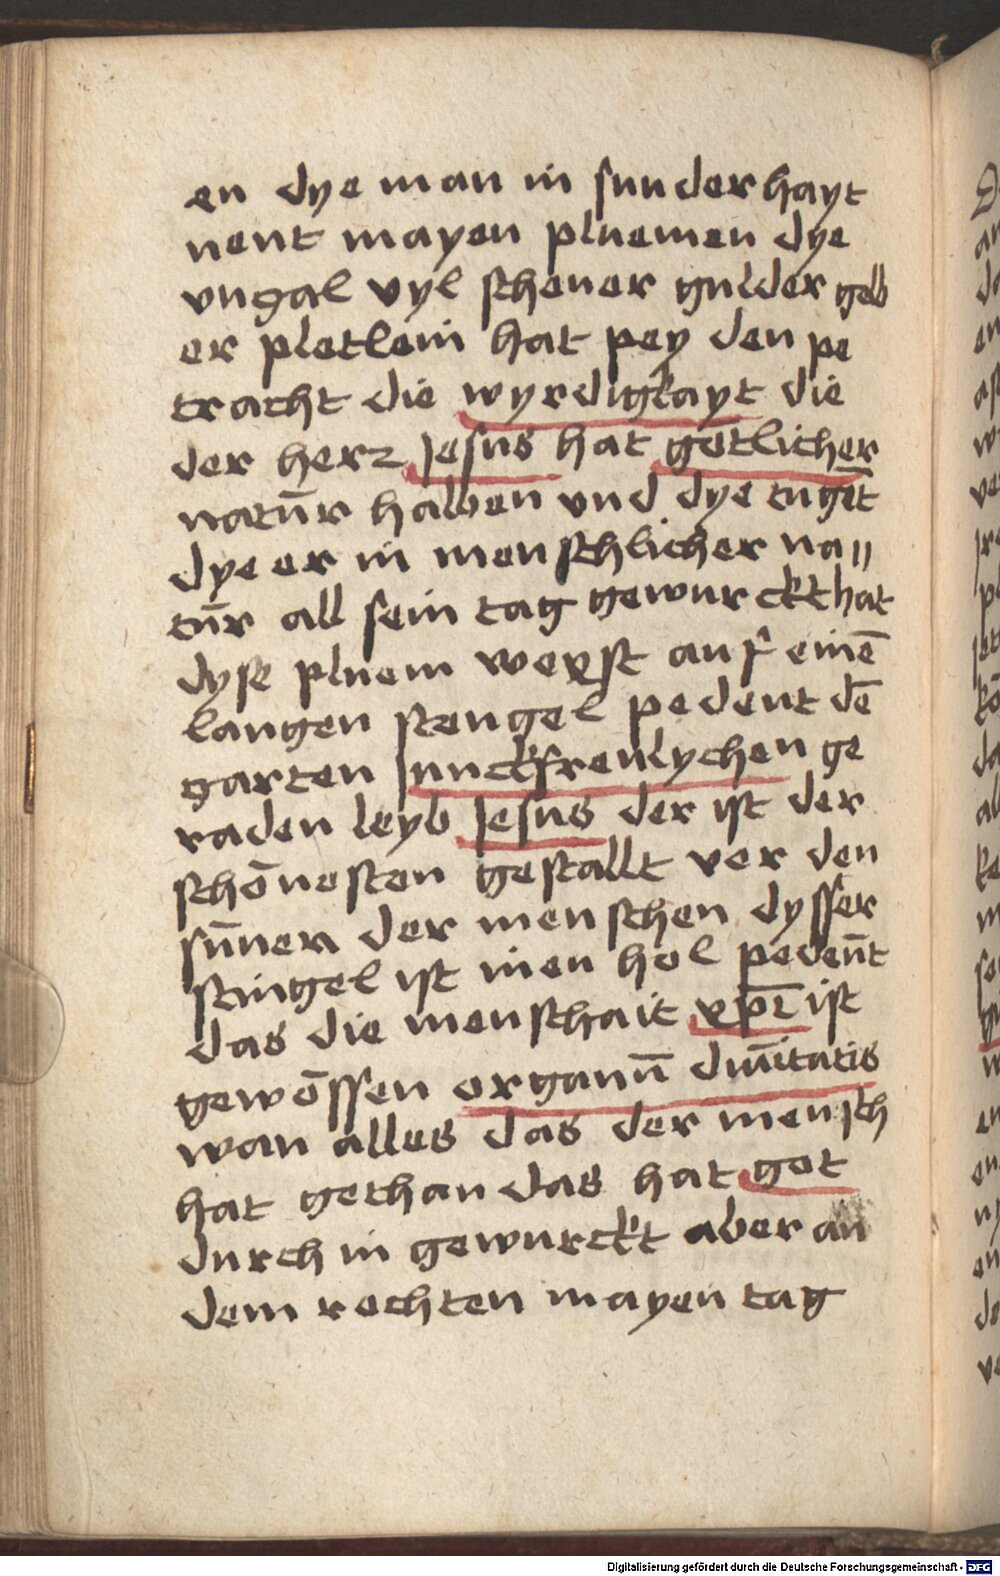 en dye man in sunderhayt
nent mayen pluemen dye
vngal vyl schener gulder gelb
er pletlein hat pey den pe
tracht die wyrdigkayt die
der herz Jesus hat gotlicher
natūr halben vnd dye tugēt
dye er in menschlicher na〃
tūr all sein tag gewurckt hat
dyse pluem wexst auf einē
langen stengel pedeut dē
garten Junckfreulychen ge
raden leyb Jesus der ist der
schōnesten gestallt ver den
sūnen der menschen dysser
stingel ist inen hol pedeūt
das die menschait xpī ist
gewōssen organū diuītatis
wan alles das der mensch
hat gethan das hat got
durch in gewurckt aber an
dem rechten mayen tag
Digitalisierung gefördert durch die Deutsche Forschungsgemeinschaft - DFG